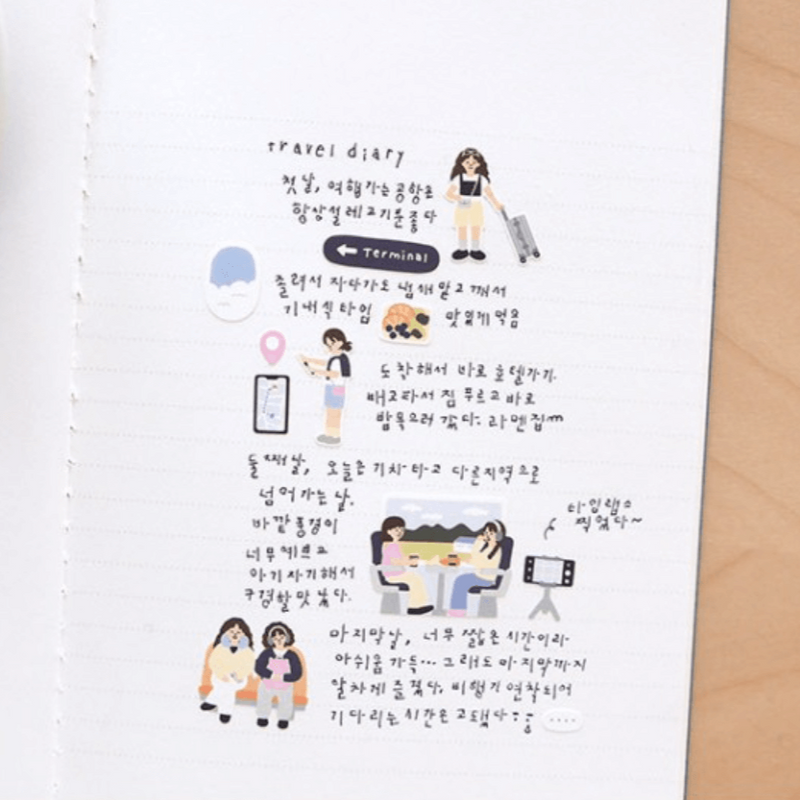 travel diary
첫날, 여행가는 공항은
항상 설레고 기분 좋다
← Terminal
졸려서 자다가도 냄새 맡고 깨서
기내식 타임 맛있게 먹음
도착해서 바로 호텔가기.
배고파서 짐 푸르고 바로
밥 먹으러 갔다. 라멘집
둘째날, 오늘은 기차 타고 다른지역으로
넘어가는 날.
바깥 풍경이
너무 예쁘고
아기자기해서
구경할 맛 났다.
타임랩스
찍었다~
마지막날, 너무 짧은 시간이라
아쉬움 가득... 그래도 마지막까지
알차게 즐겼다. 비행기 연착되어
기다리는 시간은 고됐다
....